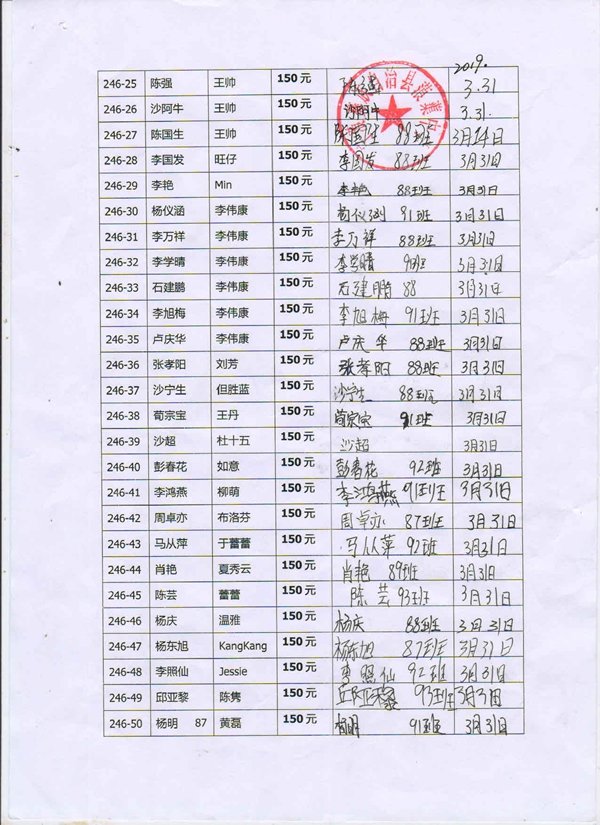 2019.
246-25 陈强 王帅 150元 陈强 3.31
246-26 沙阿牛 王帅 150元 沙阿牛 3.31.
246-27 陈国生 王帅 150元 陈国生 88班 3月14日
246-28 李国发 旺仔 150元 李国发 88班 3月31日
246-29 李艳 Min 150元 李艳 88班 3月31日
246-30 杨仪涵 李伟康 150元 91班 3月31日
246-31 李万祥 李伟康 150元 李万祥 88班 3月31日
246-32 李学晴 李伟康 150元 李学晴 3月31日
246-33 石建鹏 李伟康 150元 石建鹏 88 3月31日
246-34 李旭梅 李伟康 150元 李旭梅 91班 3月31日
246-35 卢庆华 李伟康 150元 卢庆华 88班 3月31日
246-36 张孝阳 刘芳 150元 张孝阳 88班 3月31日
246-37 沙宁生 但胜蓝 150元 沙宁生 88班 3月31日
246-38 荀宗宝 王丹 150元 荀宗宝 91班 3月31日
246-39 沙超 杜十五 150元 沙超 3月31日
246-40 彭春花 如意 150元 彭春花 92班 3月31日
246-41 李鸿燕 柳萌 150元 李鸿燕 91班 3月31日
246-42 周卓亦 布洛芬 150元 周卓亦 87班 3月31日
246-43 马从萍 于蕾蕾 150元 马从萍 92班 3月31日
246-44 肖艳 夏秀云 150元 肖艳 89班 3月31日
246-45 陈芸 蕾蕾 150元 陈芸 93班 3月31日
246-46 杨庆 温雅 150元 杨庆 88班 3月31日
246-47 杨东旭 KangKang 150元 杨东旭 87班 3月31日
246-48 李照仙 Jessie 150元 李照仙 92班 3月31日
246-49 邱亚黎 陈隽 150元 邱亚黎 93班 3月31日
246-50 杨明 87 黄磊 150元 杨明 91班 3月31日